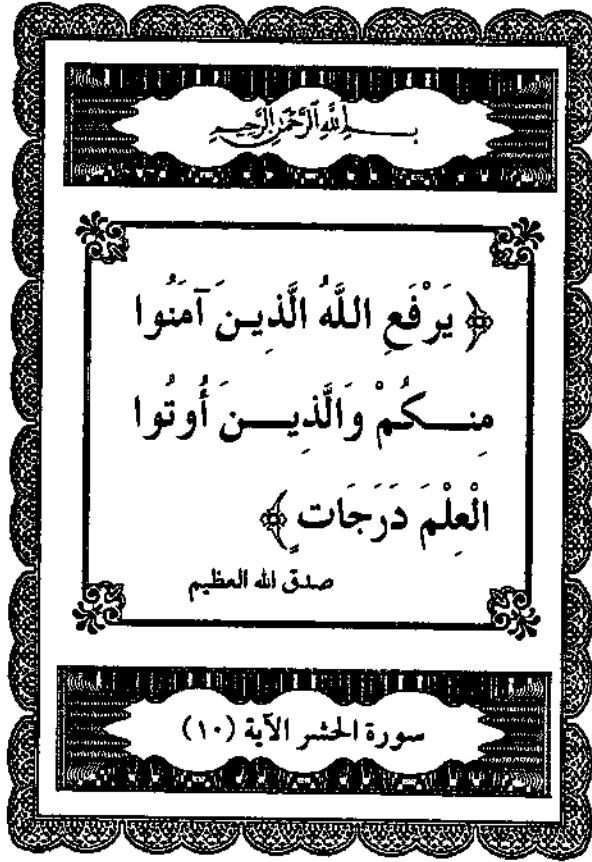 بسم الله الرحمن الرحيم
﴿ يَرْفَعِ اللَّهُ الَّذِينَ آمَنُوا
مِنكُمْ وَالَّذِينَ أُوتُوا
الْعِلْمَ دَرَجَاتٍ ﴾
صدق الله العظيم
سورة الحشر الآية (١٠)